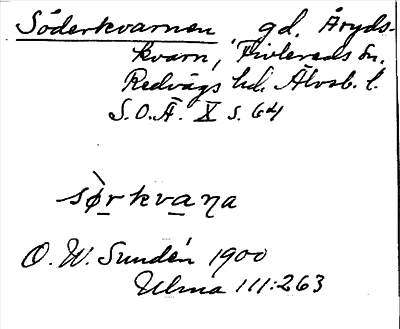 Söderkvarnen, gd. Åryds-
kvarn, Fivlereds sn.
Redvägs hd. Älvsb. l.
S.O.Ä. X s. 64
sø̀rkvana
O. W. Sundén 1900
Ulma 111:263